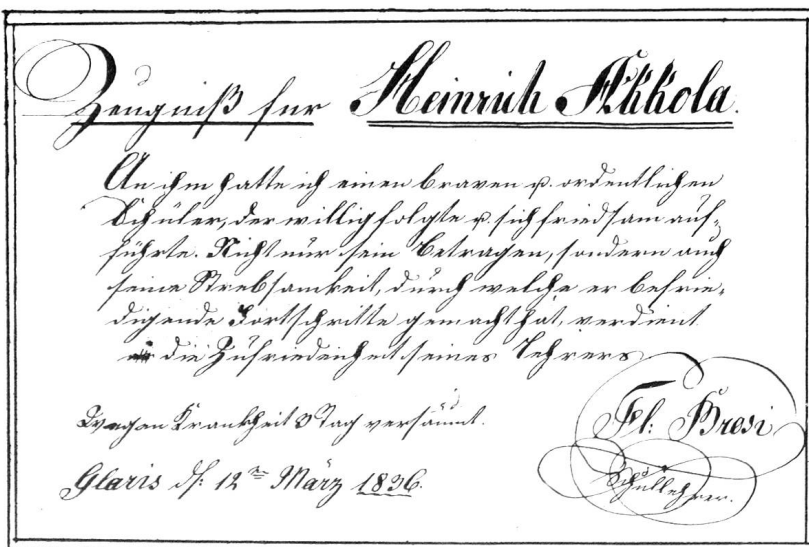 Zeugniß für Heinrich Akkola.
An ihm hatte ich einen braven u. ordentlichen
Schüler, der willig folgte u. sich friedsam auf-
führte. Nicht nur sein Betragen, sondern auch
seine Strebsamkeit, durch welche er befrie-
digende Fortschritte gemacht hat, verdient
die Zufriedenheit seines Lehrers
Wegen Krankheit 3 Tag versäumt.
Fl: Bresi
Schullehrer.
Glaris d: 12ten März 1836.